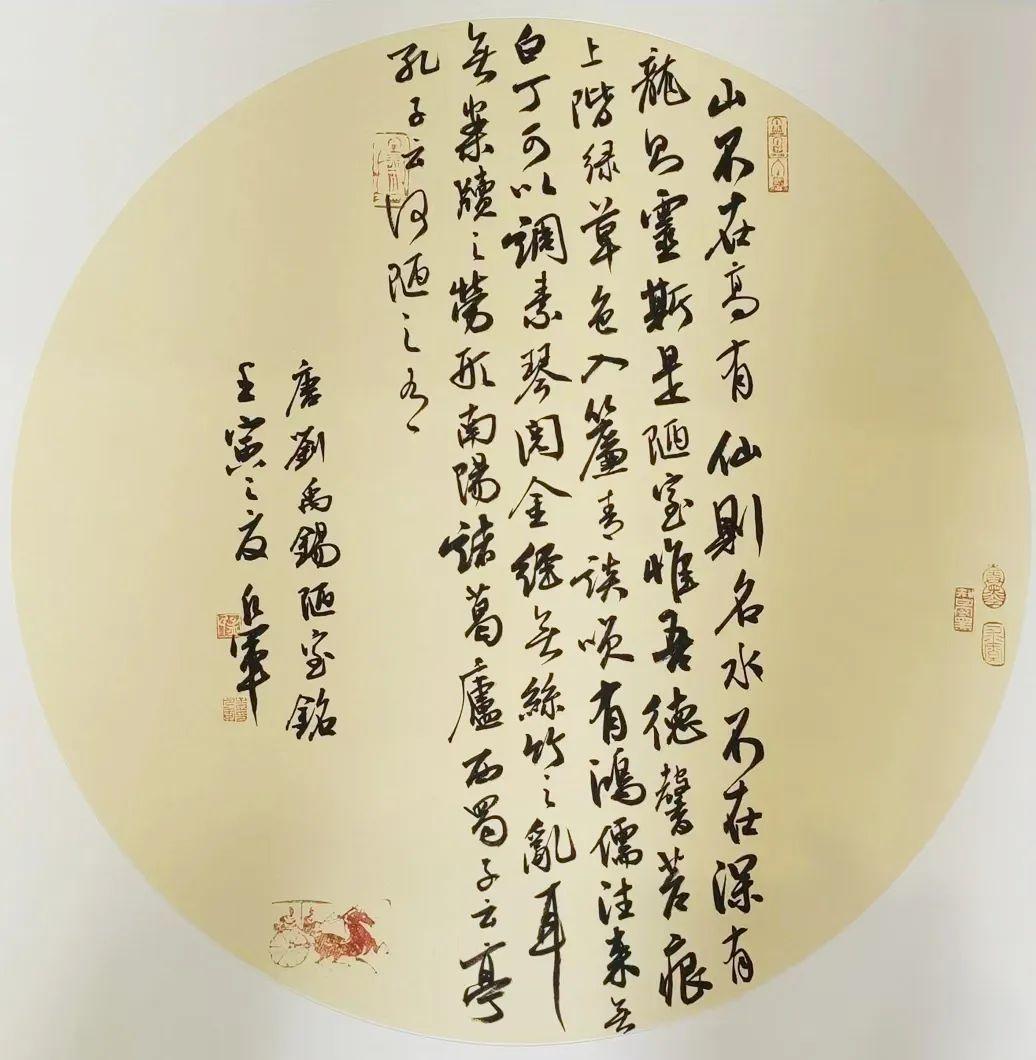 山不在高有仙則名水不在深有
龍则靈斯是陋室惟吾德馨苔痕
上階绿草色入簾青談咲有鴻儒往来無
白丁可以調素琴閲金經無絲竹之亂耳
無案牘之勞形南陽諸葛廬西蜀子云亭
孔子云何陋之有
唐劉禹錫陋室銘
壬寅之夏軍